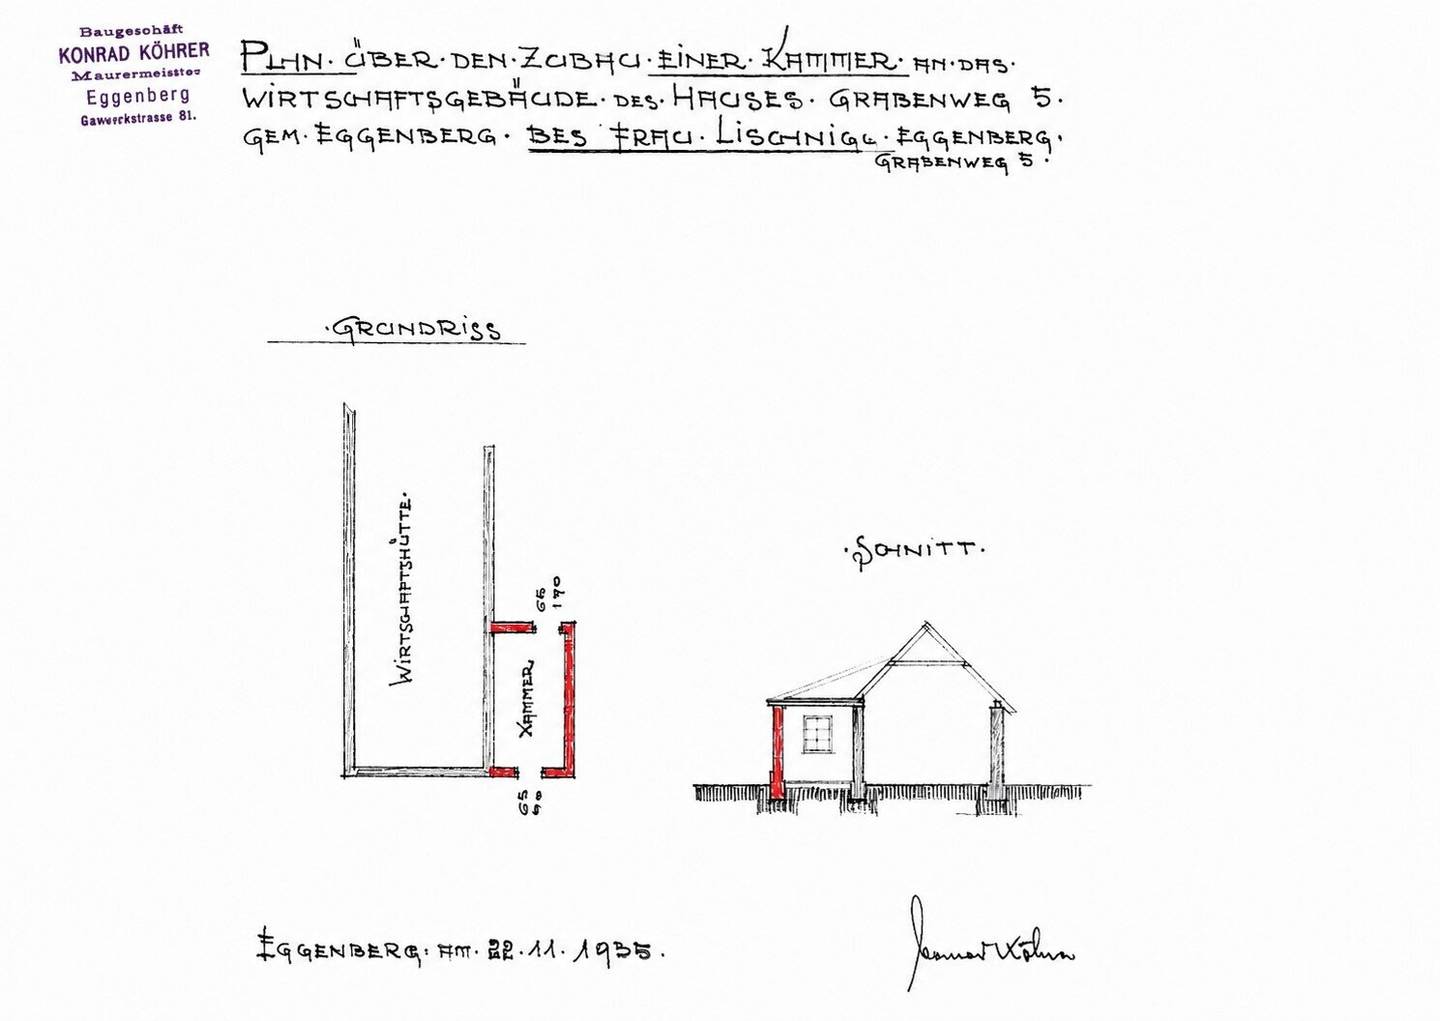 Baugeschäft
KONRAD KÖHRER
Maurermeister
Eggenberg
Gawerckstrasse 81.
PLAN · ÜBER · DEN · ZUBAU · EINER · KAMMER · AN · DAS ·
WIRTSCHAFTSGEBÄUDE · DES · HAUSES · GRABENWEG 5 ·
GEM · EGGENBERG · BES FRAU · LISCHNIGG · EGGENBERG ·
GRABENWEG 5 ·
· GRUNDRISS
WIRTSCHAFTSHÜTTE ·
65
170
KAMMER
65
50
· SCHNITT ·
EGGENBERG · AM · 22 · 11 · 1935 ·
Konrad Köhrer